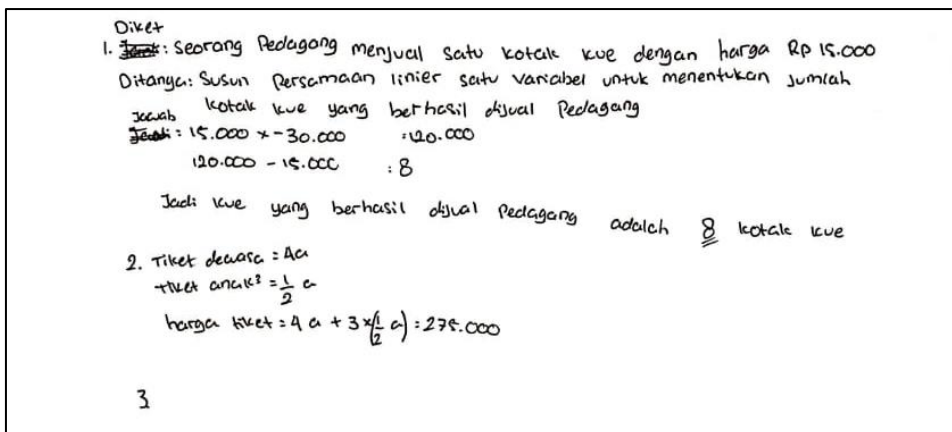 Diket
1. : Seorang Pedagang menjual satu kotak kue dengan harga Rp 15.000
Ditanya: Susun Persamaan linier satu variabel untuk menentukan Jumlah
kotak kue yang berhasil dijual Pedagang
Jawab
: 15.000 x - 30.000 : 120.000
120.000 - 15.000 : 8
Jadi kue yang berhasil dijual Pedagang adalah 8 kotak kue
2. Tiket dewasa = 4a
tiket anak² = 1/2 a
harga tiket = 4 a + 3 x (1/2 a) = 275.000
3